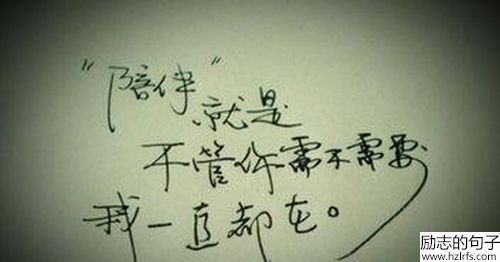 “陪伴”
就是
不管你需不需要
我一直都在。
励志的句子
www.hzlrfs.com